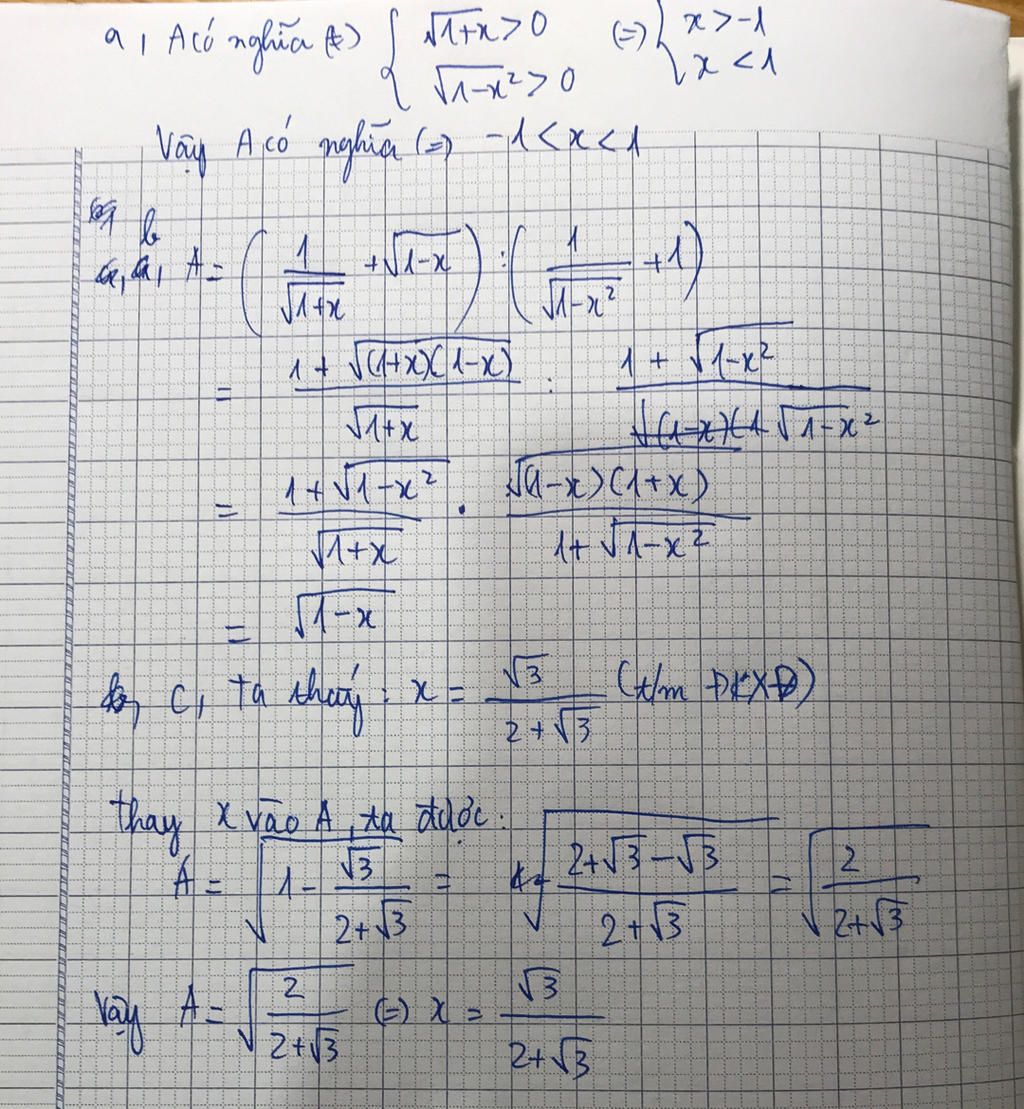 a, A có nghĩa (=) { √(1+x) > 0 (=) { x > -1
√(1-x²) > 0 x < 1
Vậy A có nghĩa (=) -1 < x < 1
b, A = (1/√(1+x) + √(1-x)) : (1/√(1-x²) + 1)
= (1 + √((1+x)(1-x)))/√(1+x) : (1 + √(1-x²))/√(1-x²)
= (1 + √(1-x²))/√(1+x) . √((1-x)(1+x))/(1 + √(1-x²))
= √(1-x)
c, Ta thấy : x = √3/(2+√3) (t/m ĐKXĐ)
thay x vào A, ta được:
A = √(1 - √3/(2+√3)) = √((2+√3-√3)/(2+√3)) = √(2/(2+√3))
Vậy A = √(2/(2+√3)) (=) x = √3/(2+√3)